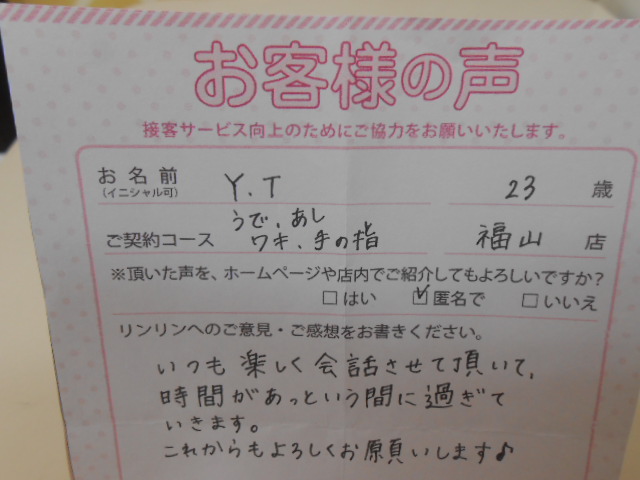 お客様の声
接客サービス向上のためにご協力をお願いいたします。
お名前
(イニシャル可)
Y.T
23 歳
うで、あし
ご契約コース ワキ、手の指
福山 店
※頂いた声を、ホームページや店内でご紹介してもよろしいですか?
□はい ☑匿名で □いいえ
リンリンへのご意見・ご感想をお書きください。
いつも楽しく会話させて頂いて、
時間があっという間に過ぎて
いきます。
これからもよろしくお願いします♪